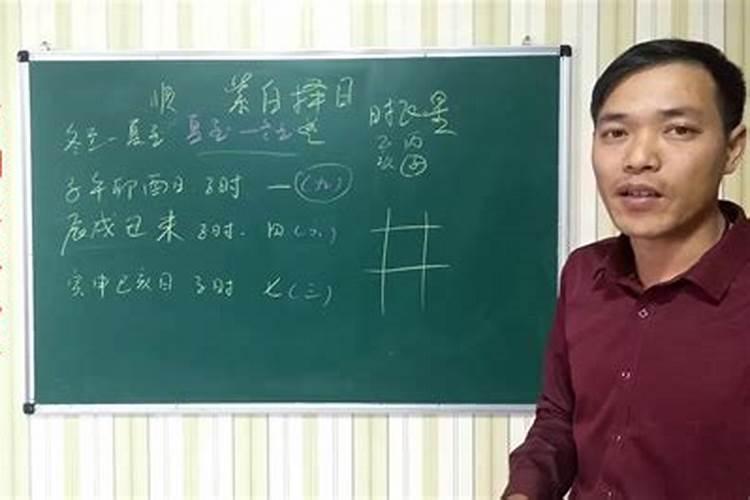 顺 紫白择日
冬至一夏至 夏至一冬至 逆
子午卯酉日 子时 一(九)
辰戌丑未 子时. 四(六)
寅申巳亥日 子时 七(三)
时飞星
乙丙